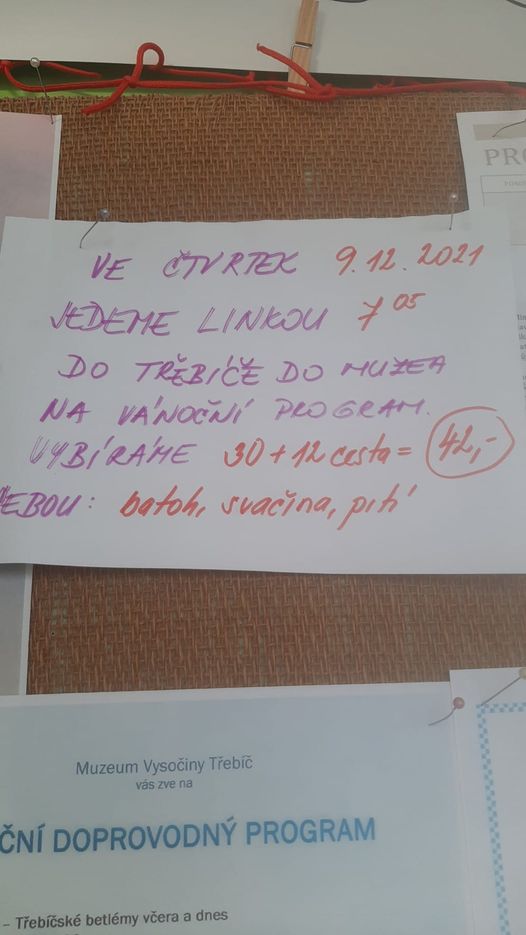 PRO
VE ČTVRTEK 9.12.2021
JEDEME LINKOU 7 05
DO TŘEBÍČE DO MUZEA
NA VÁNOČNÍ PROGRAM.
VYBÍRÁME 30 + 12 cesta = 42,-
EBOU: batoh, svačina, pití
Muzeum Vysočiny Třebíč
vás zve na
ČNÍ DOPROVODNÝ PROGRAM
– Třebíčské betlémy včera a dnes